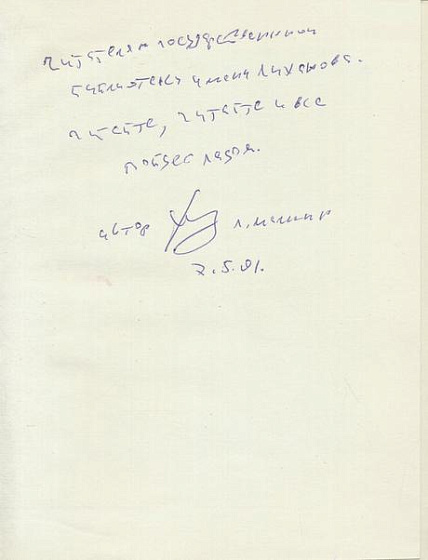 читателям государственной
библиотеки имени Лиханова.
читайте, читайте и все
пойдет ладом.
автор
7.5.01.